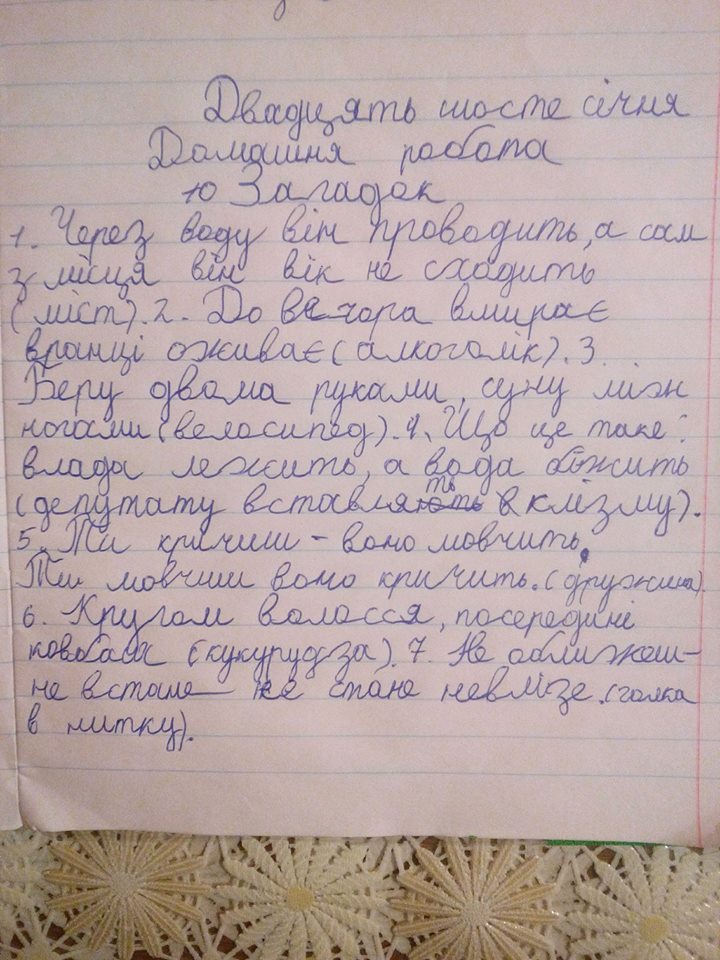 Двадцять шосте січня
Домашня робота
10 Загадок
1. Через воду він проводить, а сам
з місця він вік не сходить
(міст). 2. До вечора вмирає
вранці оживає (алкоголік). 3.
Беру двома руками, суну між
ногами (велосипед). 4. Що це таке:
влада лежить, а вода біжить
(депутату вставляють клізму).
5. Ти кричиш - воно мовчить.
Ти мовчиш воно кричить. (дружина).
6. Кругом волосся, посередині
ковбаса (кукурудза). 7. Не оближеш -
не встане не стане невлізе. (голка
в нитку).